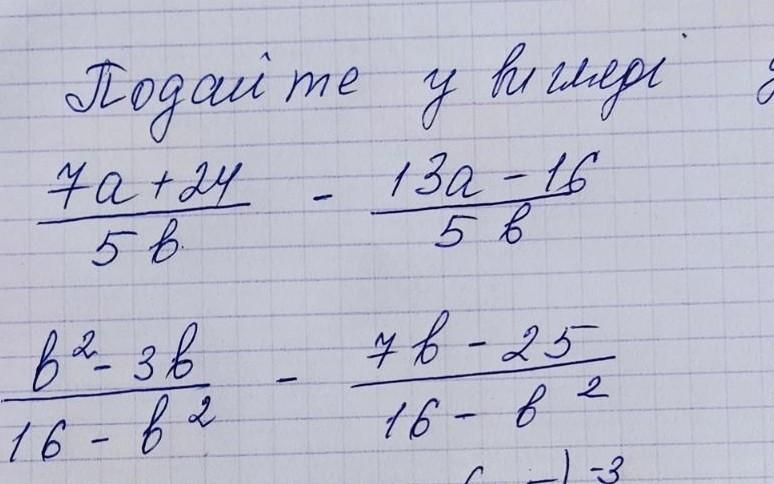 Подайте у вигляді
7a + 24 / 5b - 13a - 16 / 5b
b² - 3b / 16 - b² - 7b - 25 / 16 - b²
-3